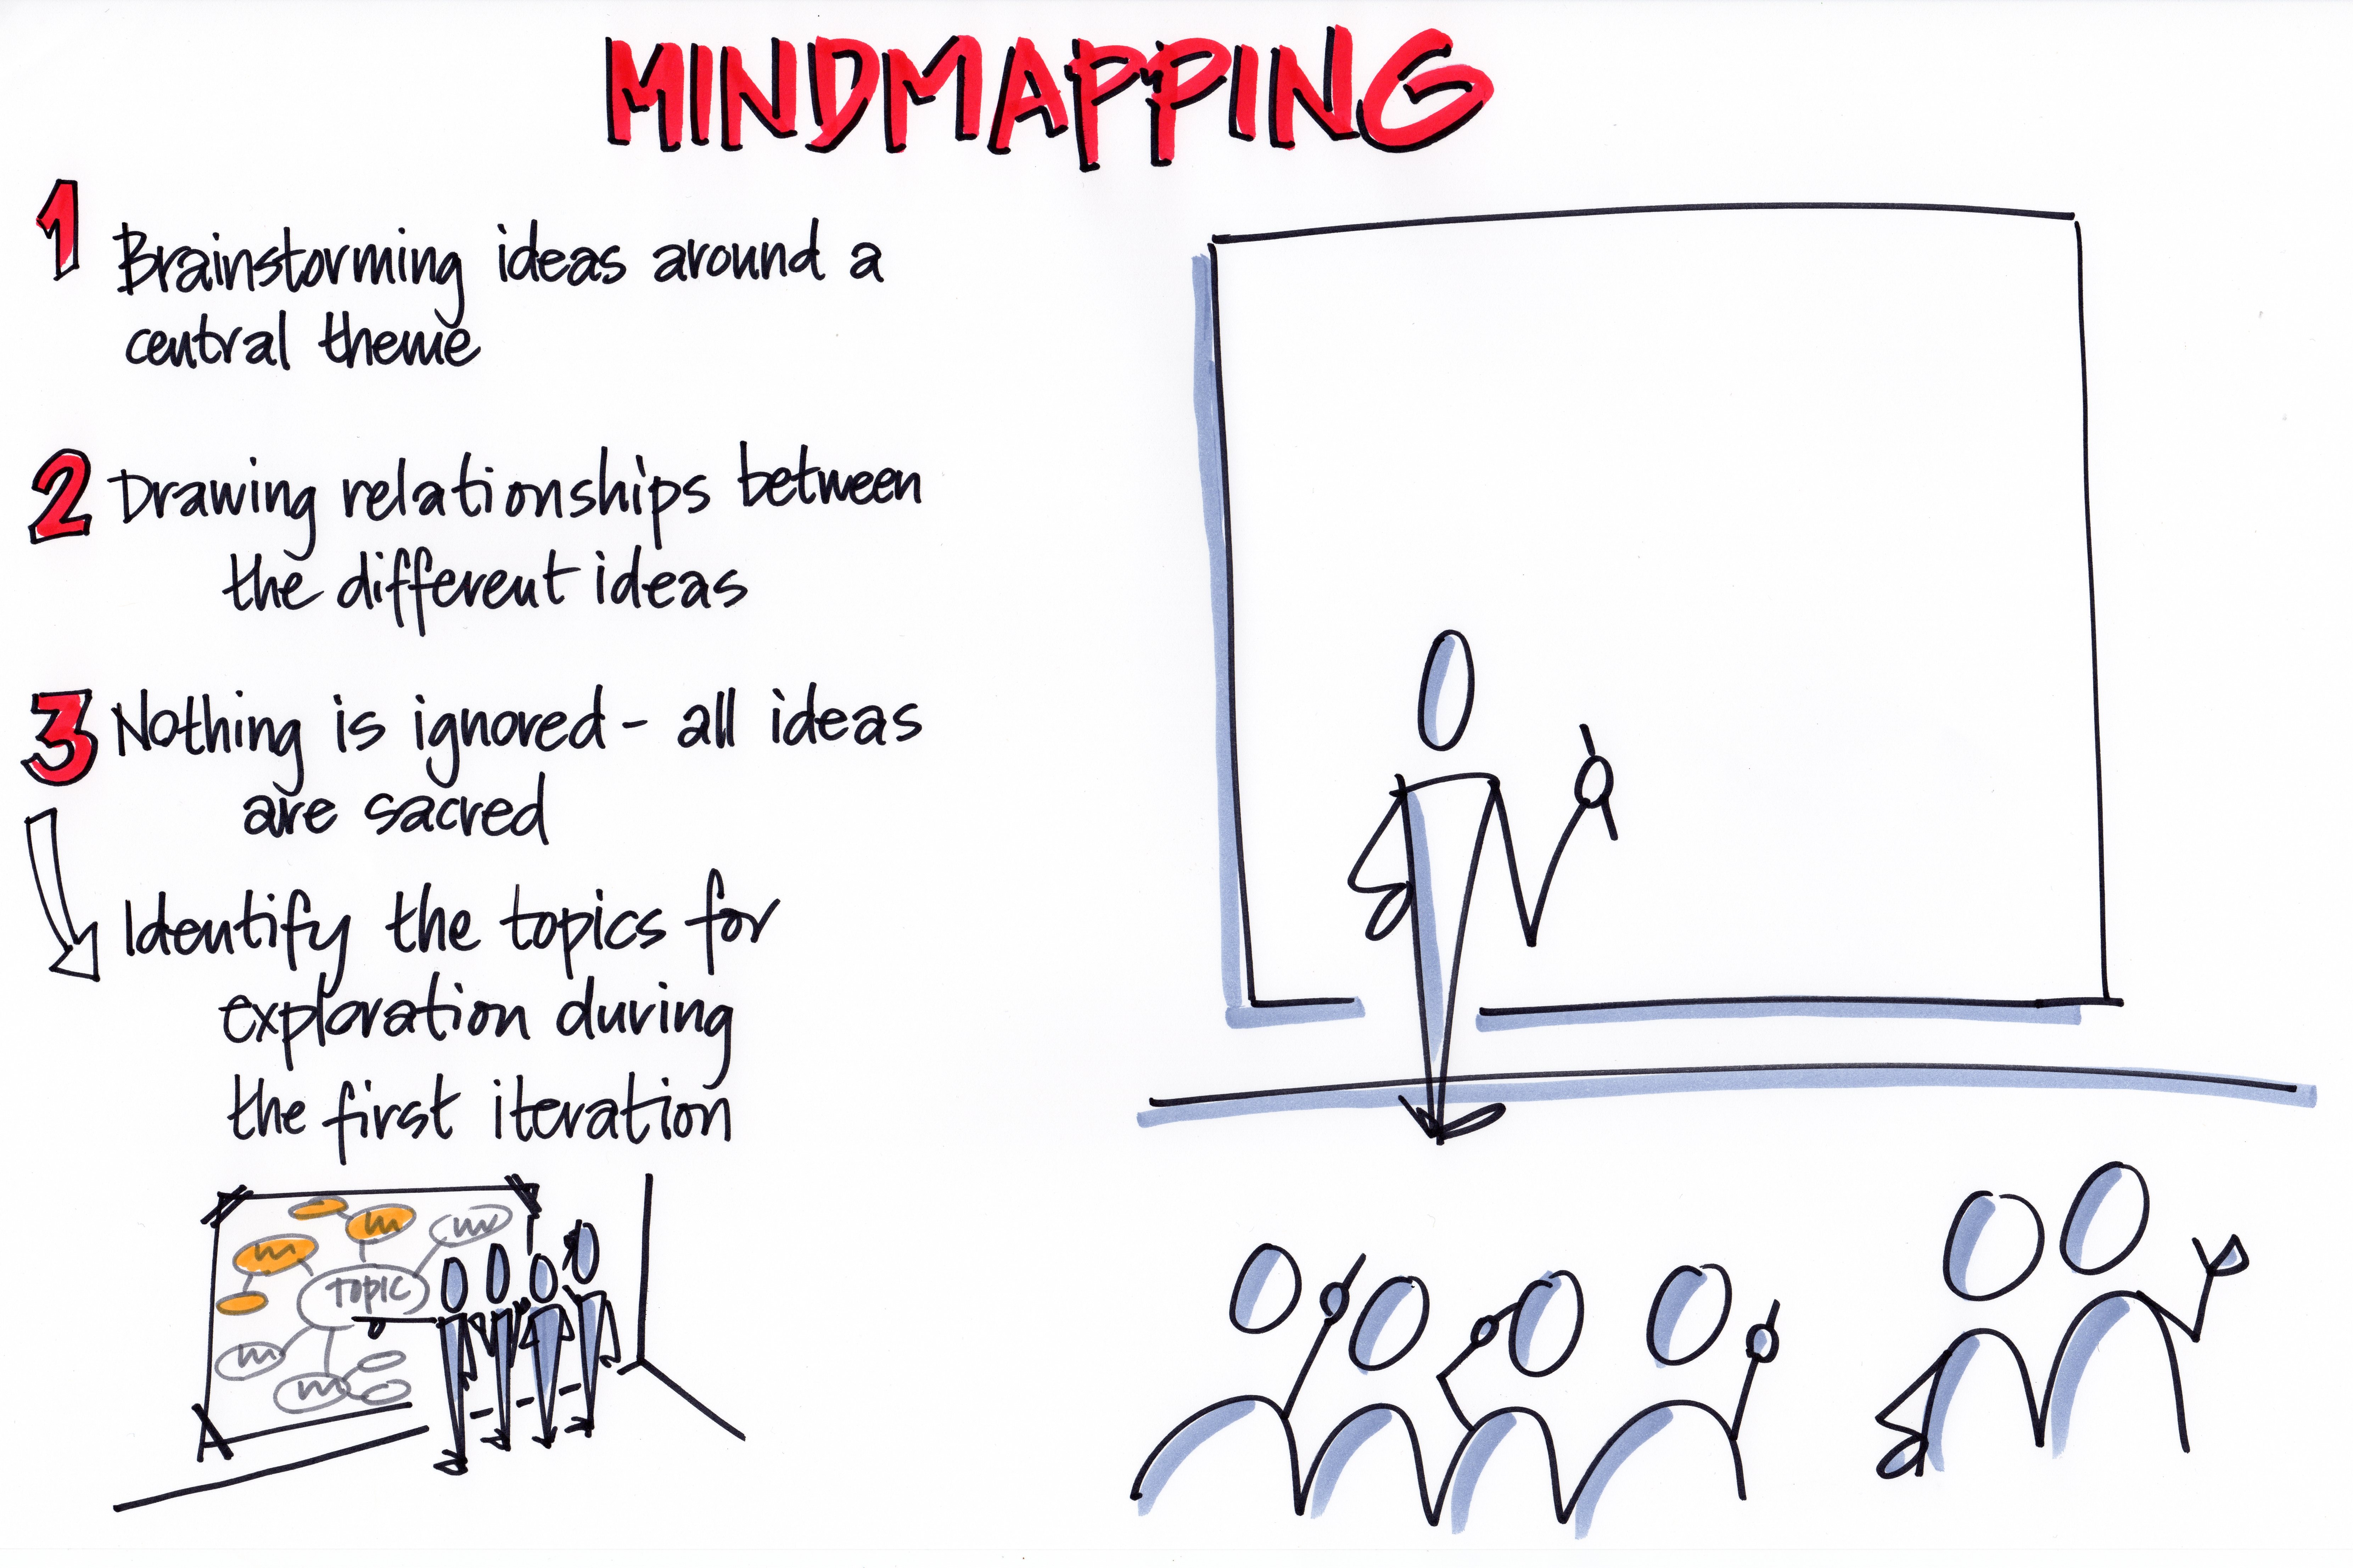 MINDMAPPING
1 Brainstorming ideas around a
central theme
2 Drawing relationships between
the different ideas
3 Nothing is ignored - all ideas
are sacred
Identify the topics for
exploration during
the first iteration
topic